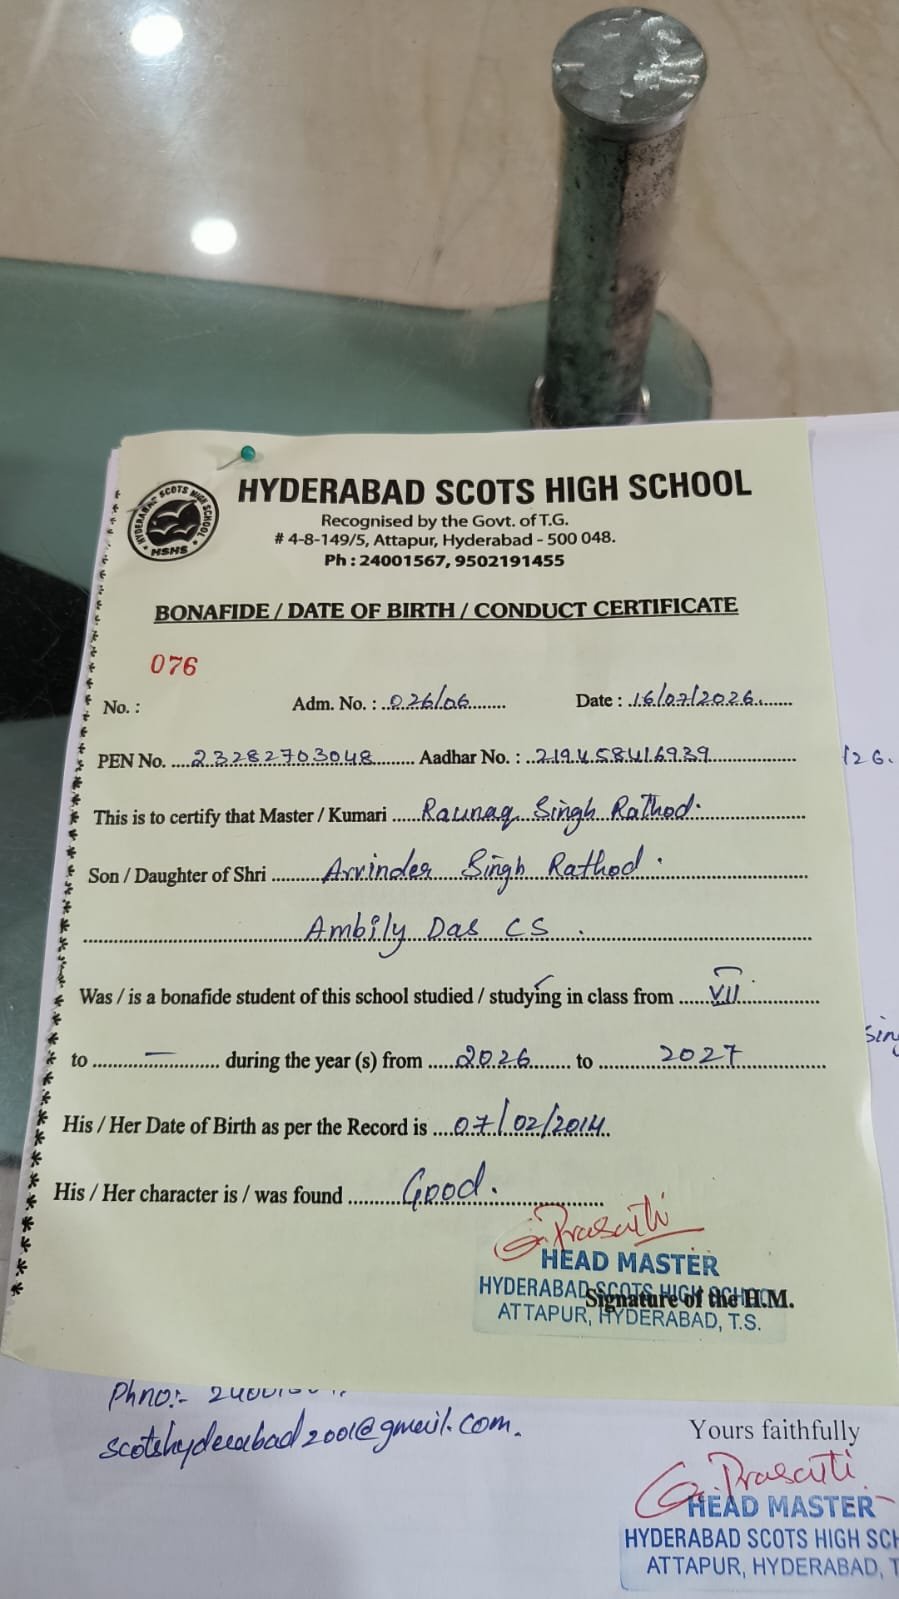 HYDERABAD SCOTS HIGH SCHOOL
HYDERABAD SCOTS HIGH SCHOOL
HSHS
Recognised by the Govt. of T.G.
# 4-8-149/5, Attapur, Hyderabad - 500 048.
Ph : 24001567, 9502191455
BONAFIDE / DATE OF BIRTH / CONDUCT CERTIFICATE
076
No. : Adm. No. : 026/06 Date : 16/07/2026
PEN No. 23282703048 Aadhar No. : 219458416939
This is to certify that Master / Kumari Raunaq Singh Rathod.
Son / Daughter of Shri Arvinder Singh Rathod.
Ambily Das CS.
Was / is a bonafide student of this school studied / studying in class from VII
to — during the year (s) from 2026 to 2027
His / Her Date of Birth as per the Record is 07/02/2014
His / Her character is / was found Good.
G. Prasuti
HEAD MASTER
HYDERABAD SCOTS HIGH SCHOOL
Signature of the H.M.
ATTAPUR, HYDERABAD, T.S.
/26.
Sing
Phno:-
scotshyderabad2001@gmail.com.
Yours faithfully
G. Prasuti
HEAD MASTER
HYDERABAD SCOTS HIGH SCH
ATTAPUR, HYDERABAD, T